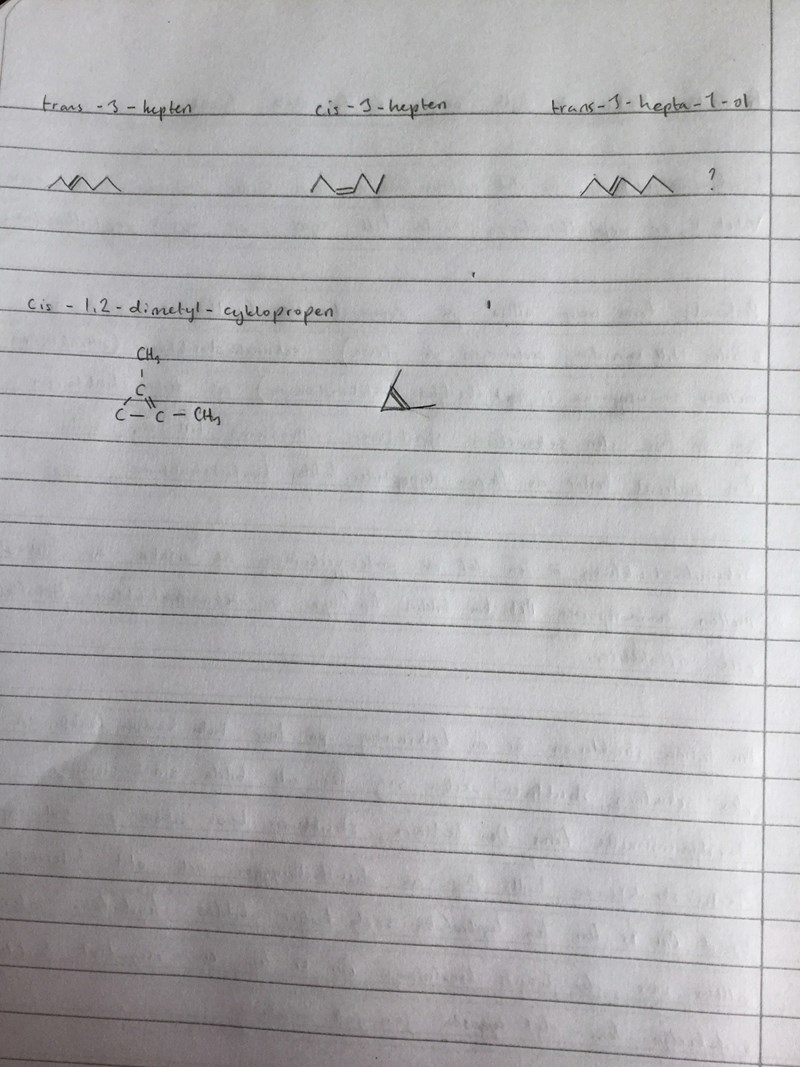 trans - 3 - hepten cis - 3 - hepten trans - 3 - hepta - 1 - ol
?
cis - 1,2 - dimetyl - cyklopropen
CH3
C
C - C - CH3